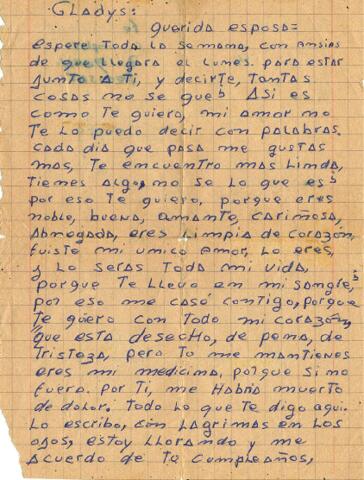 GLadys:
querida esposa=
espere Toda La semana, con ansias
de que LLegara el Lunes. para estar
Junto a Ti, y decirte, Tantas
cosas no se que? Asi es
como Te quiero, mi amor no
Te Lo puedo decir con palabras.
cada dia que pasa me gustas
mas, Te encuentro mas Linda,
Tienes algo, no se Lo que es?
por eso Te quiero, porque eres
noble, buena, amante, cariñosa,
Abnegada, eres Limpia de corazón
fuiste mi unico amor, Lo eres,
y Lo seras Toda mi vida,
porque Te LLevo en mi sangre,
por eso me casé contigo, porque
Te quero con Todo mi corazón,
que esta desecho, de pena, de
Tristeza, pero Tu me mantienes
eres mi medicina, porque si no
fuera. por Ti, me Habria muerto
de dolor. Todo Lo que Te digo aqui.
Lo escribo, con Lagrimas en Los
ojos, estoy LLorando y me
acuerdo de Tu cumpleaños,